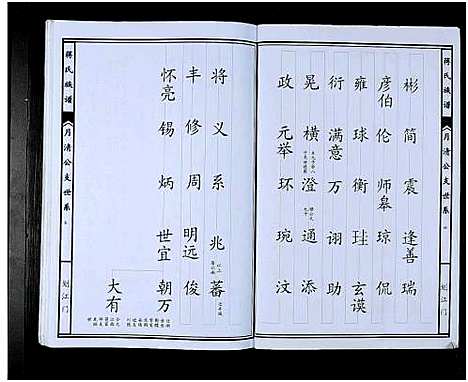 蒋氏族谱
月清公支世系
划江门
彬 简 震 逢善 瑞
彦伯 伦 师皋 琼 侃
雍 球 衡 玄谟
衍 满意 万 诩 助
晃 横 澄 通 添
政 元举 环 琬 汶
将 义 系 兆 蕃
丰 修 周 明远 俊
怀亮 锡 炳 世宜 朝万
大有
蒋氏族谱
月清公支世系
划江门